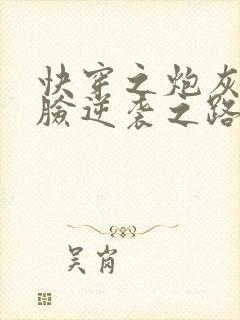 快穿之炮灰
脸逆袭之路
吴肖